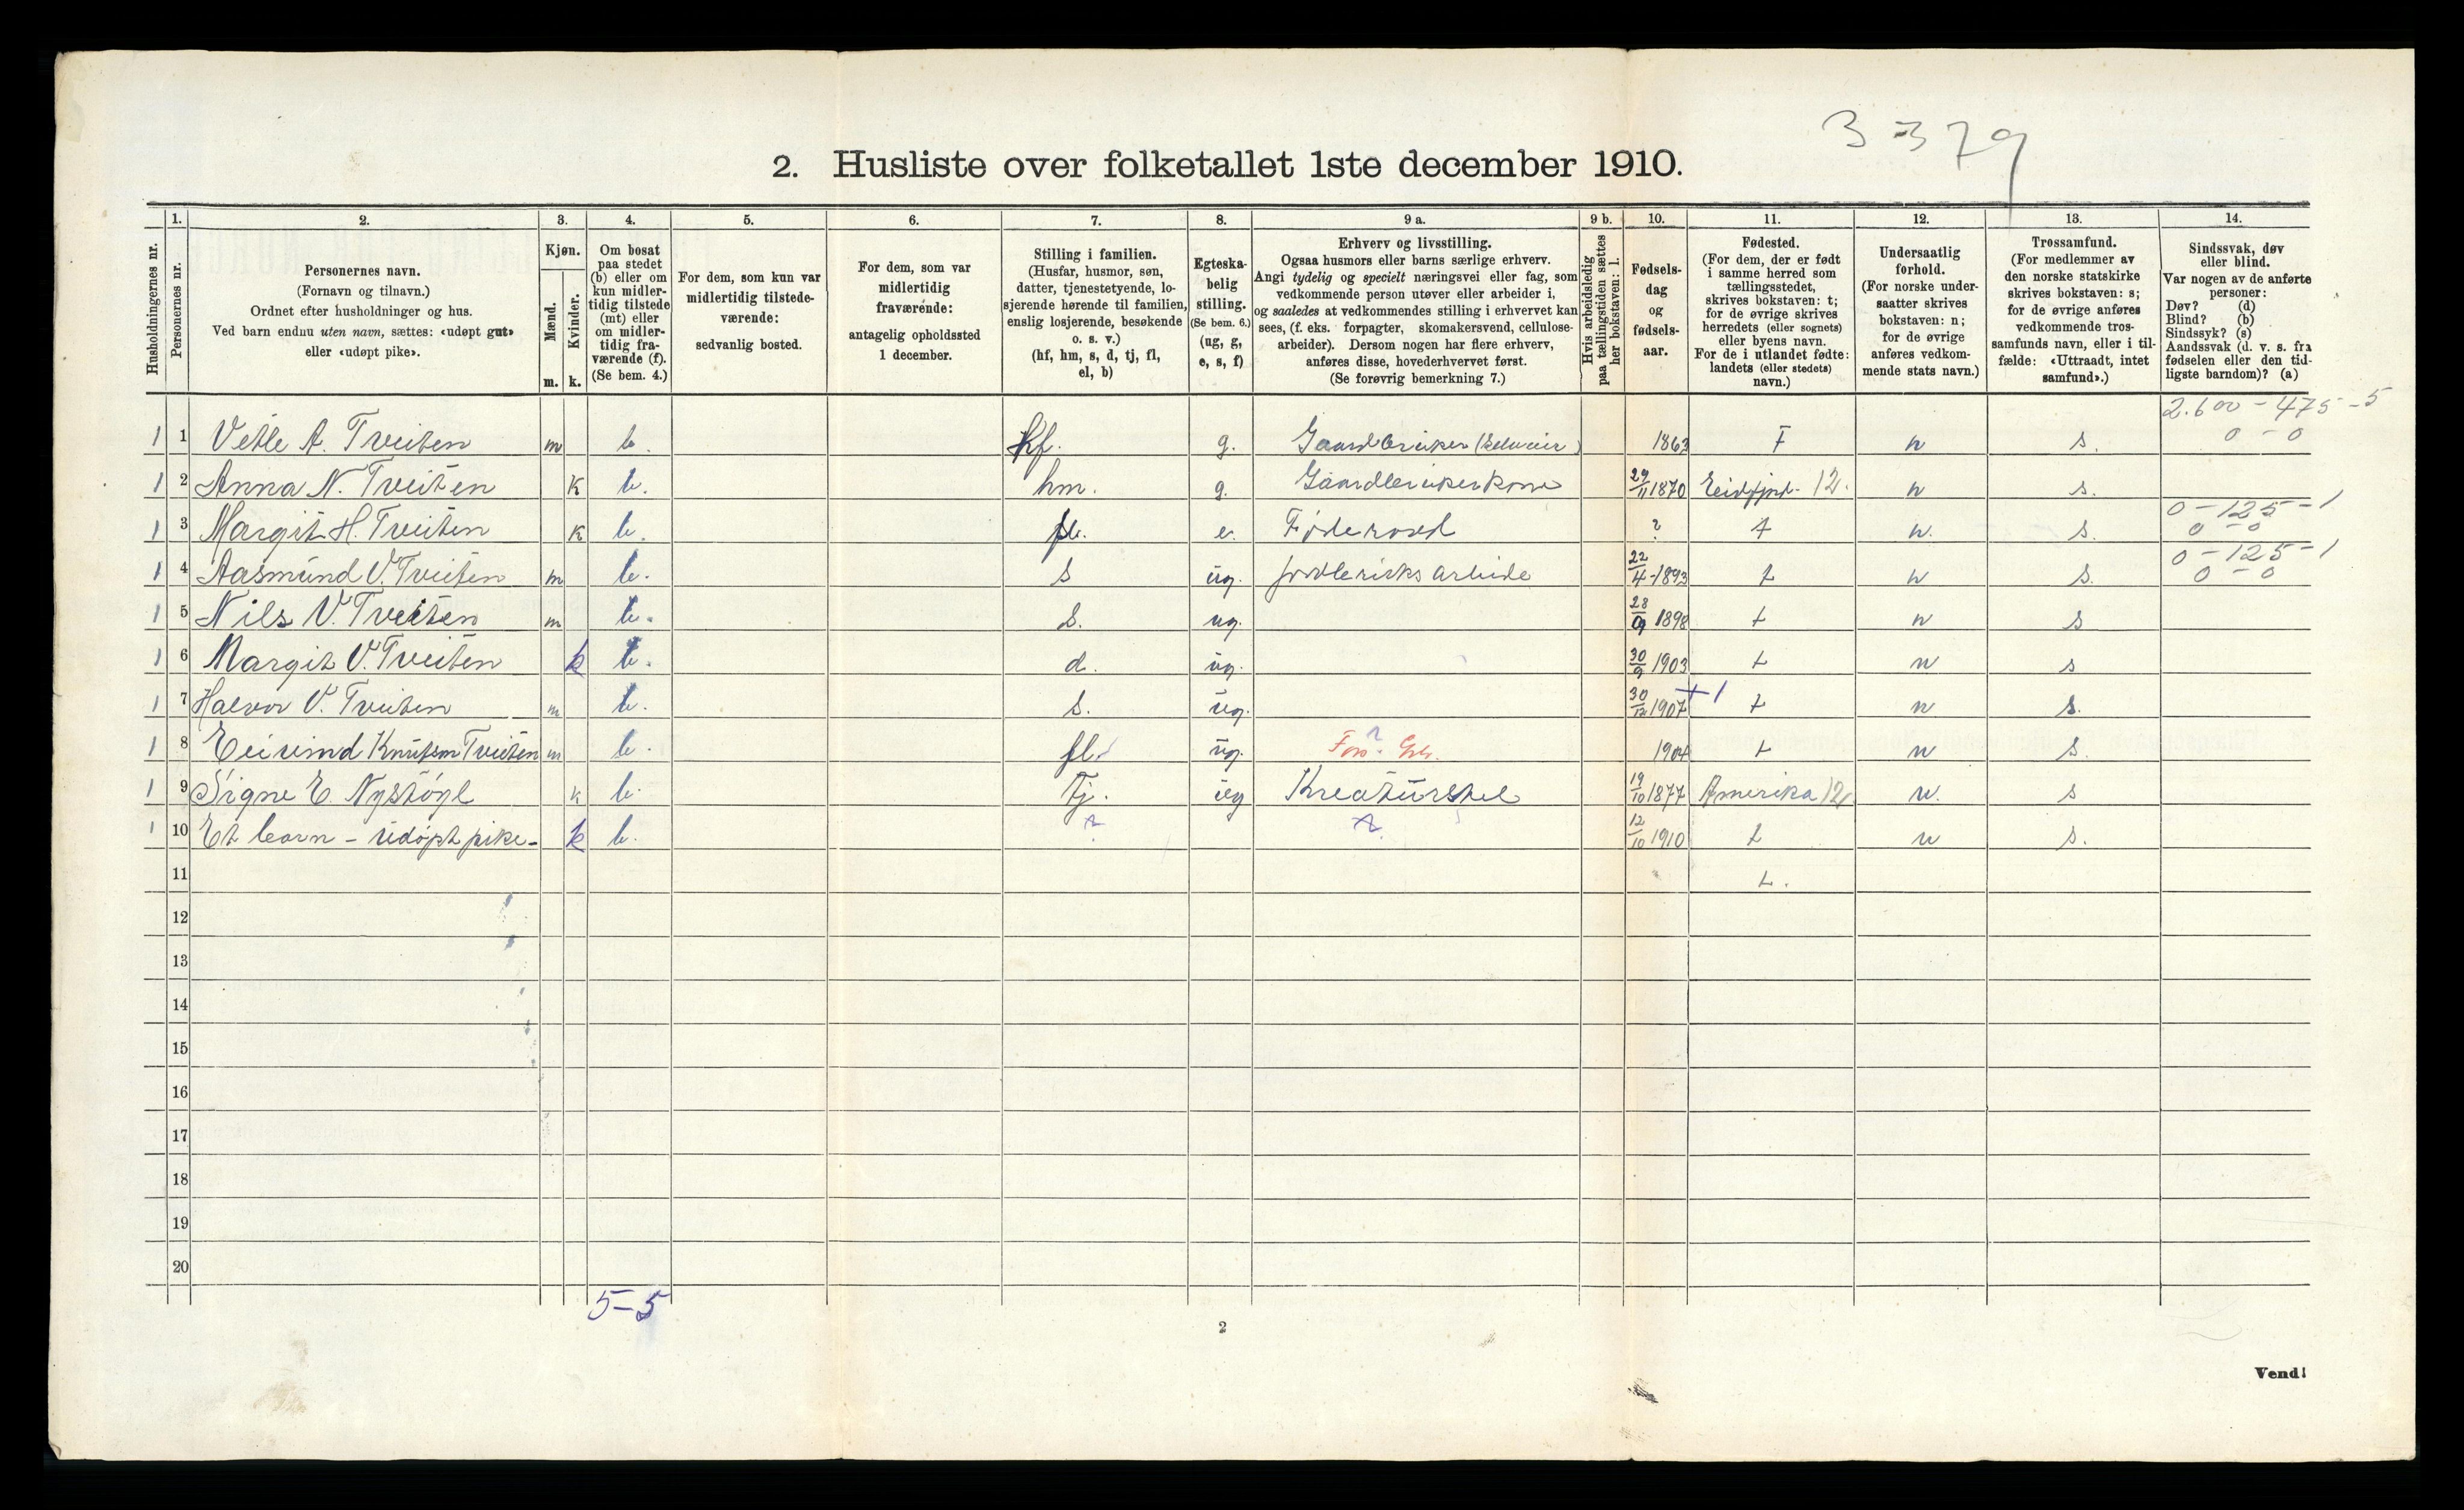 3-379
2. Husliste over folketallet 1ste december 1910.
Husholdningernes nr.
1.
Personernes nr.
2.
Personernes navn.
(Fornavn og tilnavn.)
Ordnet efter husholdninger og hus.
Ved barn endnu uten navn, sættes: «udøpt gut»
eller «udøpt pike».
3.
Kjøn.
Mænd.
Kvinder.
m. k.
4.
Om bosat
paa stedet
(b) eller om
kun midler-
tidig tilstede
(mt) eller
om midler-
tidig fra-
værende (f).
(Se bem. 4.)
5.
For dem, som kun var
midlertidig tilstede-
værende:
sedvanlig bosted.
6.
For dem, som var
midlertidig
fraværende:
antagelig opholdssted
1 december.
7.
Stilling i familien.
(Husfar, husmor, søn,
datter, tjenestetyende, lo-
sjerende hørende til familien,
enslig losjerende, besøkende
o. s. v.)
(hf, hm, s, d, tj, fl,
el, b)
8.
Egteska-
belig
stilling.
(Se bem. 6.)
(ug, g,
e, s, f)
9 a.
Erhverv og livsstilling.
Ogsaa husmors eller barns særlige erhverv.
Angi tydelig og specielt næringsvei eller fag, som
vedkommende person utøver eller arbeider i,
og saaledes at vedkommendes stilling i erhvervet kan
sees, (f. eks. forpagter, skomakersvend, cellulose-
arbeider). Dersom nogen har flere erhverv,
anføres disse, hovederhvervet først.
(Se forøvrig bemerkning 7.)
9 b.
Hvis arbeidsledig
paa tællingstiden sættes
her bokstaven: l.
10.
Fødsels-
dag
og
fødsels-
aar.
11.
Fødested.
(For dem, der er født
i samme herred som
tællingsstedet,
skrives bokstaven: t;
for de øvrige skrives
herredets (eller sognets)
eller byens navn.
For de i utlandet fødte:
landets (eller stedets)
navn.)
12.
Undersaatlig
forhold.
(For norske under-
saatter skrives
bokstaven: n;
for de øvrige
anføres vedkom-
mende stats navn.)
13.
Trossamfund.
(For medlemmer av
den norske statskirke
skrives bokstaven: s;
for de øvrige anføres
vedkommende tros-
samfunds navn, eller i til-
fælde: «Uttraadt, intet
samfund».)
14.
Sindssvak, døv
eller blind.
Var nogen av de anførte
personer:
Døv? (d)
Blind? (b)
Sindssyk? (s)
Aandssvak (d. v. s. fra
fødselen eller den tid-
ligste barndom)? (a)
2.600 - 475 - 5
1 1 Vetle A. Tveiten m b. hf. g. Gaardbruker 1863 T n s. 0 - 0
1 2 Anna N. Tveiten k b. hm. g. Gaardbrukerkone 29/11 1870 Eidfjord 12. n s.
0 - 125 - 1
1 3 Margit H. Tveiten k b. fl. e. Føderaad ? t n. s. 0 - 0
0 - 125 - 1
1 4 Aasmund V. Tveiten m b. s ug. jordbruks arbeide 22/4 - 1893 t n s. 0 - 0
1 5 Nils V. Tveiten m b. s. ug. 28/9 1898 t n s
1 6 Margit V. Tveiten k b. d. ug. 30/9 1903 t n s
1 7 Halvor V. Tveiten m b. s. ug. 30/12 1907 +1 t n s.
1 8 Eivind Knutsen Tveiten m b. fl. ug. 1904 t n s.
1 9 Signe E. Nystøyl k b. Tj. ug Kreaturstel 19/10 1877 Amerika 12 n. s
1 10 Et barn - udøpt pike - k b. ? ? 12/10 1910 t n s.
11 t.
12
13
14
15
16
17
18
19
20
5-5
2
Vend!